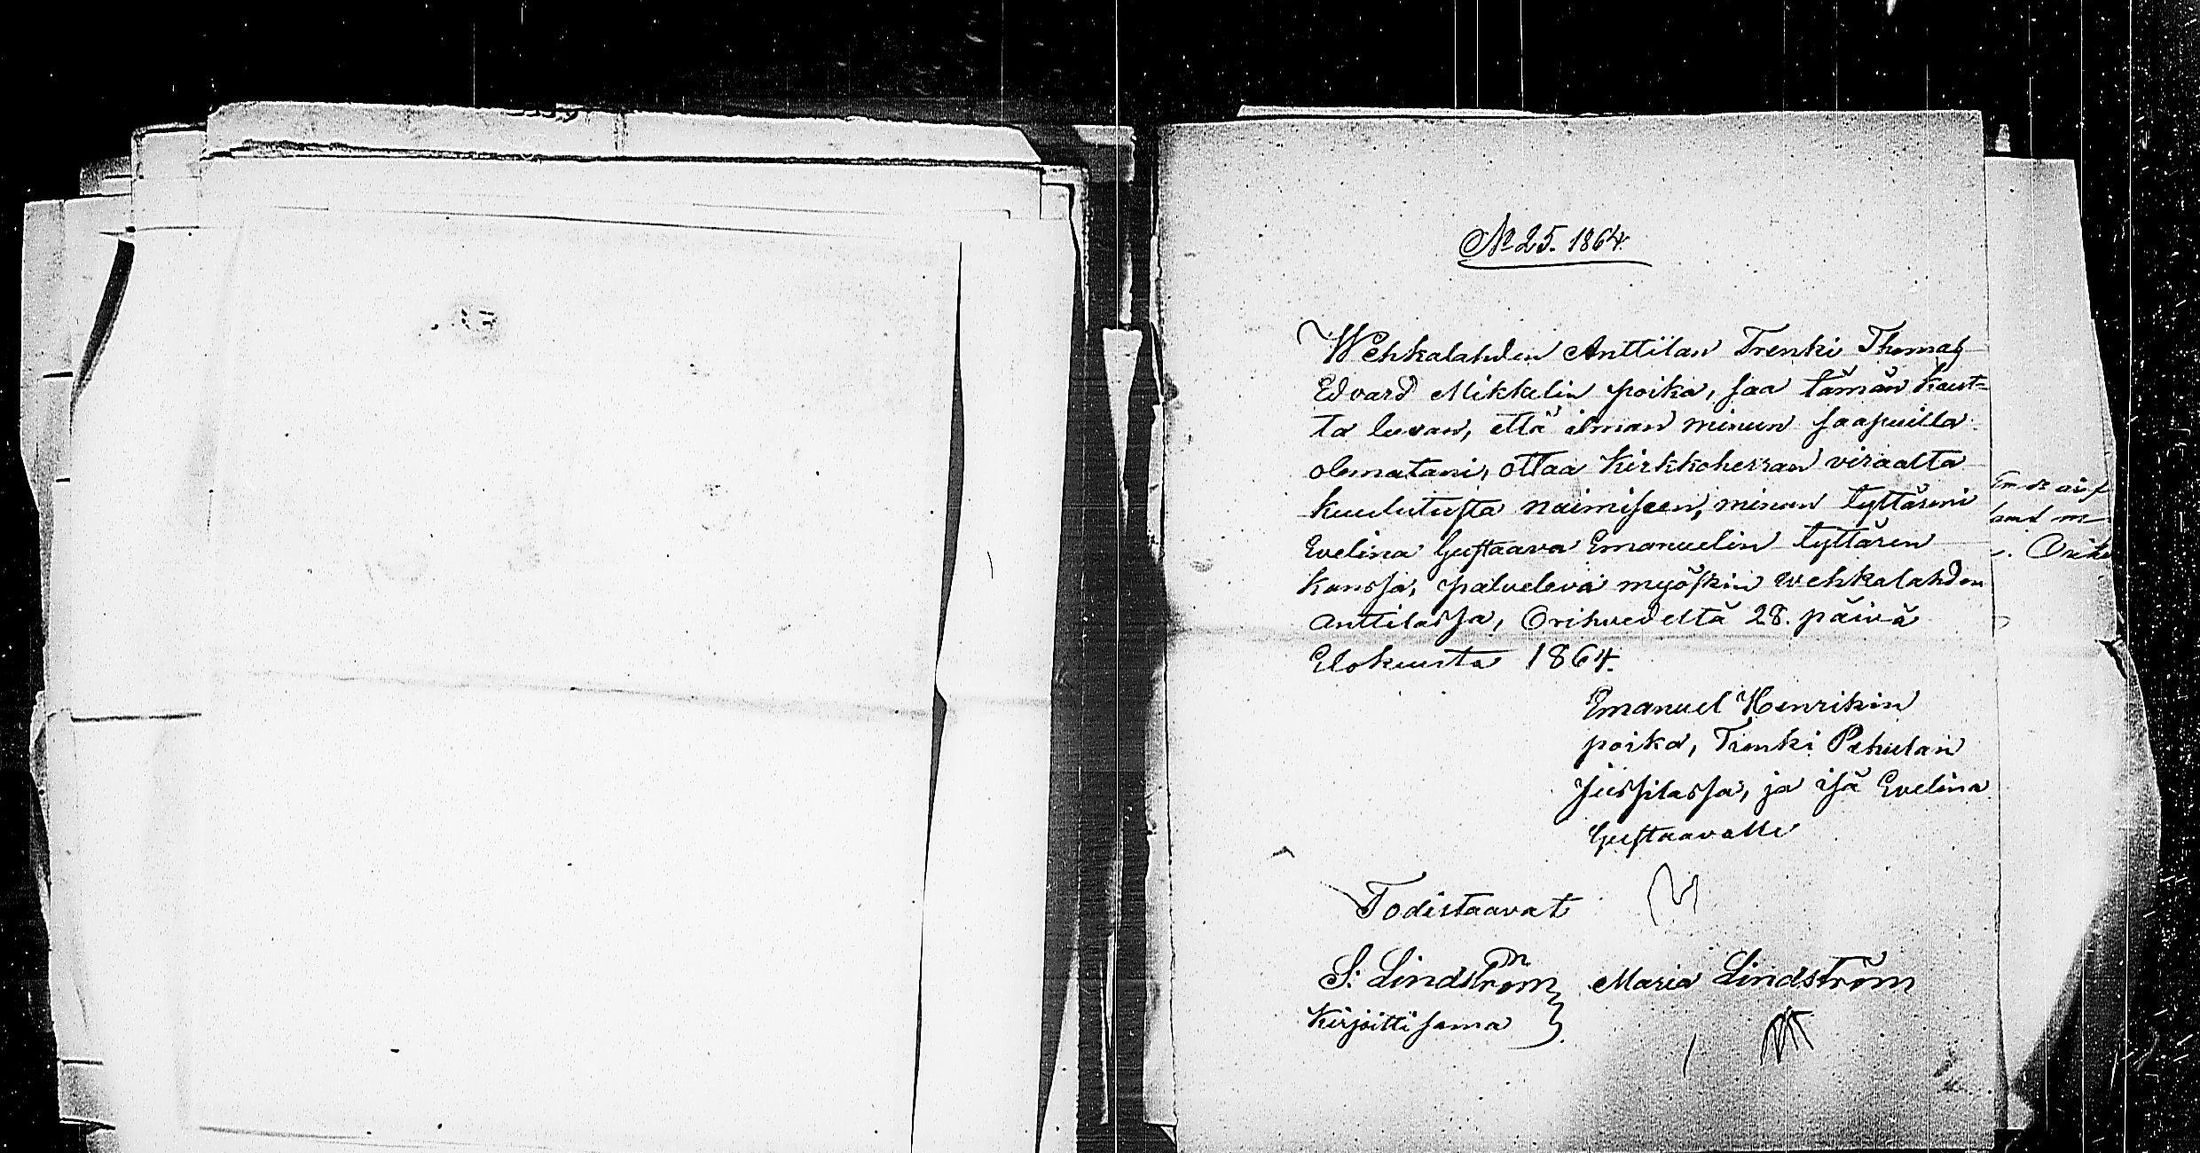 № 25. 1864.
Wehkalahden Anttilan Trenki Thomas
Edvard Mikkelin poika, saa tämän kaut=
ta luvan, että ilman minun saapuilla
olematani, ottaa Kirkkoherran viraalta
kuulutusta naimiseen, minun tyttäreni
Evelina Gustaava Emanuelin tyttären
kanssa, palveleva myöskin Wehkalahden
Anttilassa, Orihvedeltä 28. päivä
Elokuusta 1864.
Emanuel Henrikin
poika, Trenki Pehulan
Jussilassa, ja isä Evelina
Gustaavalle
Todistaavat
S. Lindström Maria Lindström
Kirjoitti sama